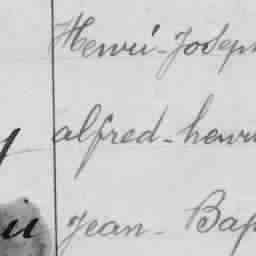 Henri-Joseph
alfred-henri
Jean-Bap